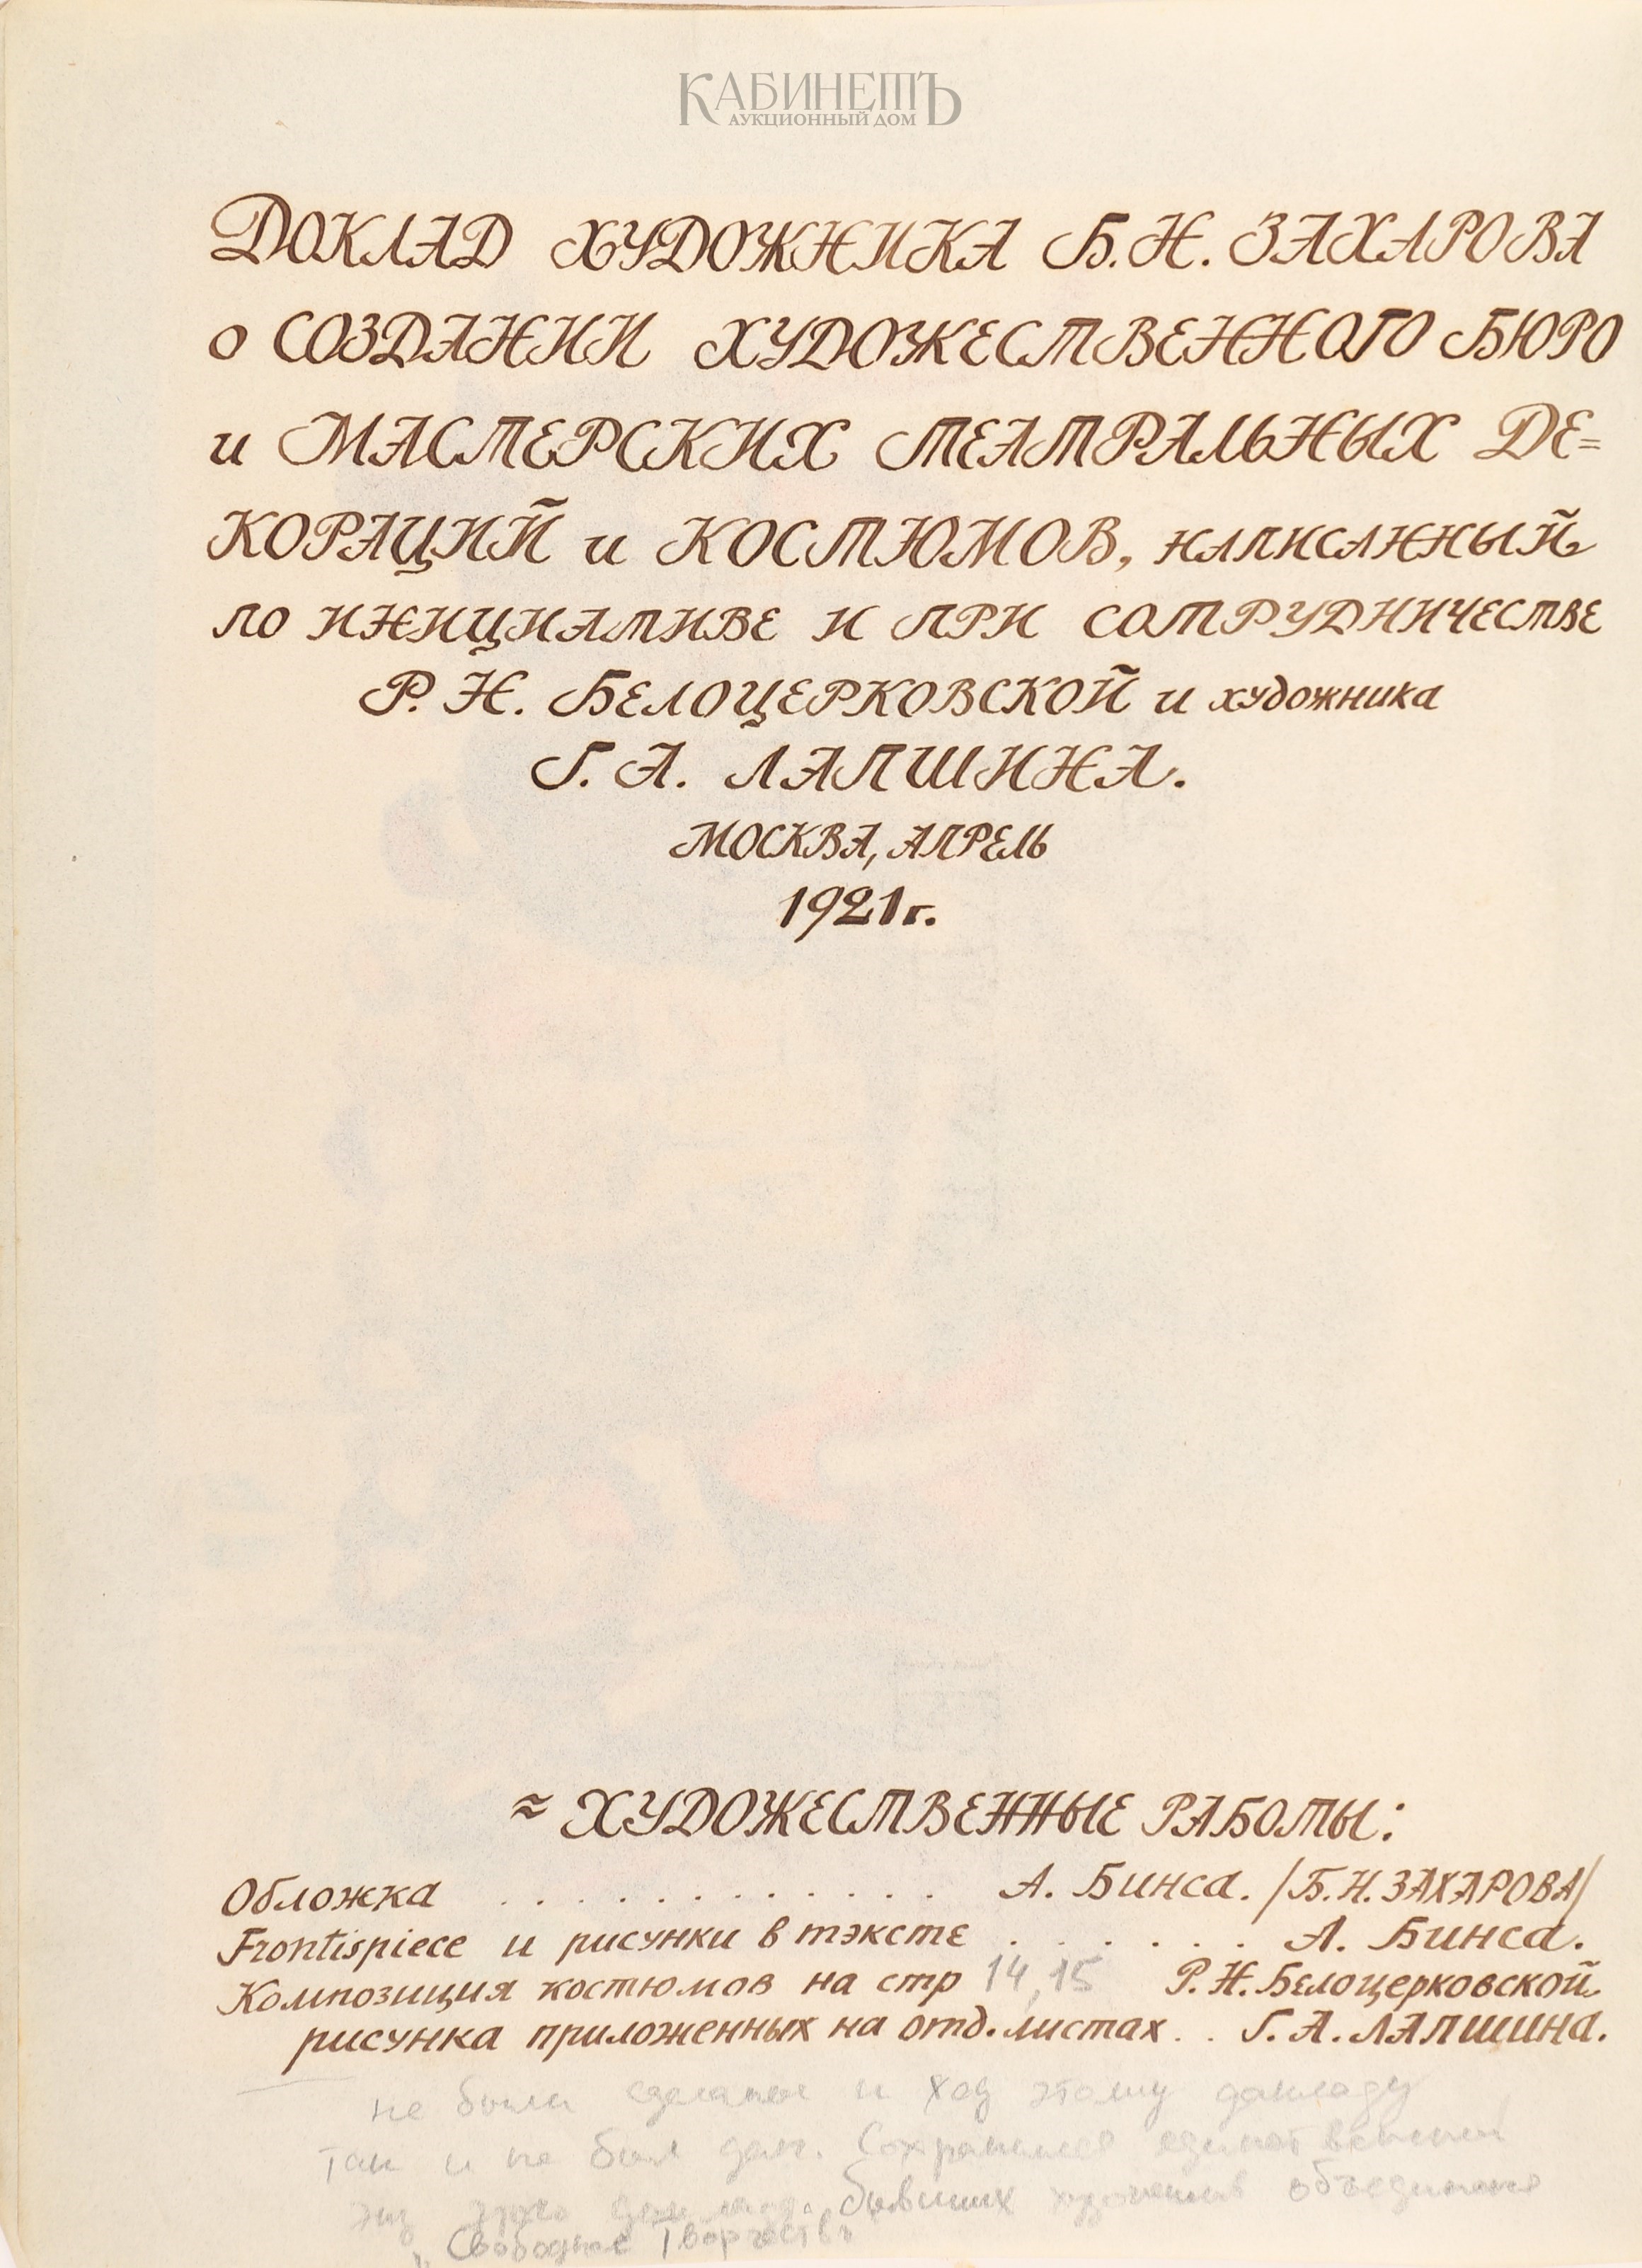 КАБИНЕТЪ
АУКЦИОННЫЙ ДОМ
ДОКЛАД ХУДОЖНИКА Б.Н. ЗАХАРОВА
о СОЗДАНИИ ХУДОЖЕСТВЕННОГО БЮРО
и МАСТЕРСКИХ ТЕАТРАЛЬНЫХ ДЕ=
КОРАЦИЙ и КОСТЮМОВ, НАПИСАННЫЙ
ПО ИНИЦИАТИВЕ И ПРИ СОТРУДНИЧЕСТВЕ
Р. Н. БЕЛОЦЕРКОВСКОЙ и художника
Г. А. ЛАПШИНА.
МОСКВА, АПРЕЛЬ
1921 г.
≈ ХУДОЖЕСТВЕННЫЕ РАБОТЫ:
Обложка . . . . . . . . . . . . А. Бинса. /Б.Н. ЗАХАРОВА/
Frontispiece и рисунки в тэксте . . . . . . А. Бинса.
Композиция костюмов на стр 14, 15 Р. Н. Белоцерковской
рисунка приложенных на отд. листах . . Г. А. ЛАПШИНА.
не были сделаны и ход этому докладу
так и не был дан. Сохранился единственный
экз этого доклада. бывших художников объединения
"Свободное Творчество"